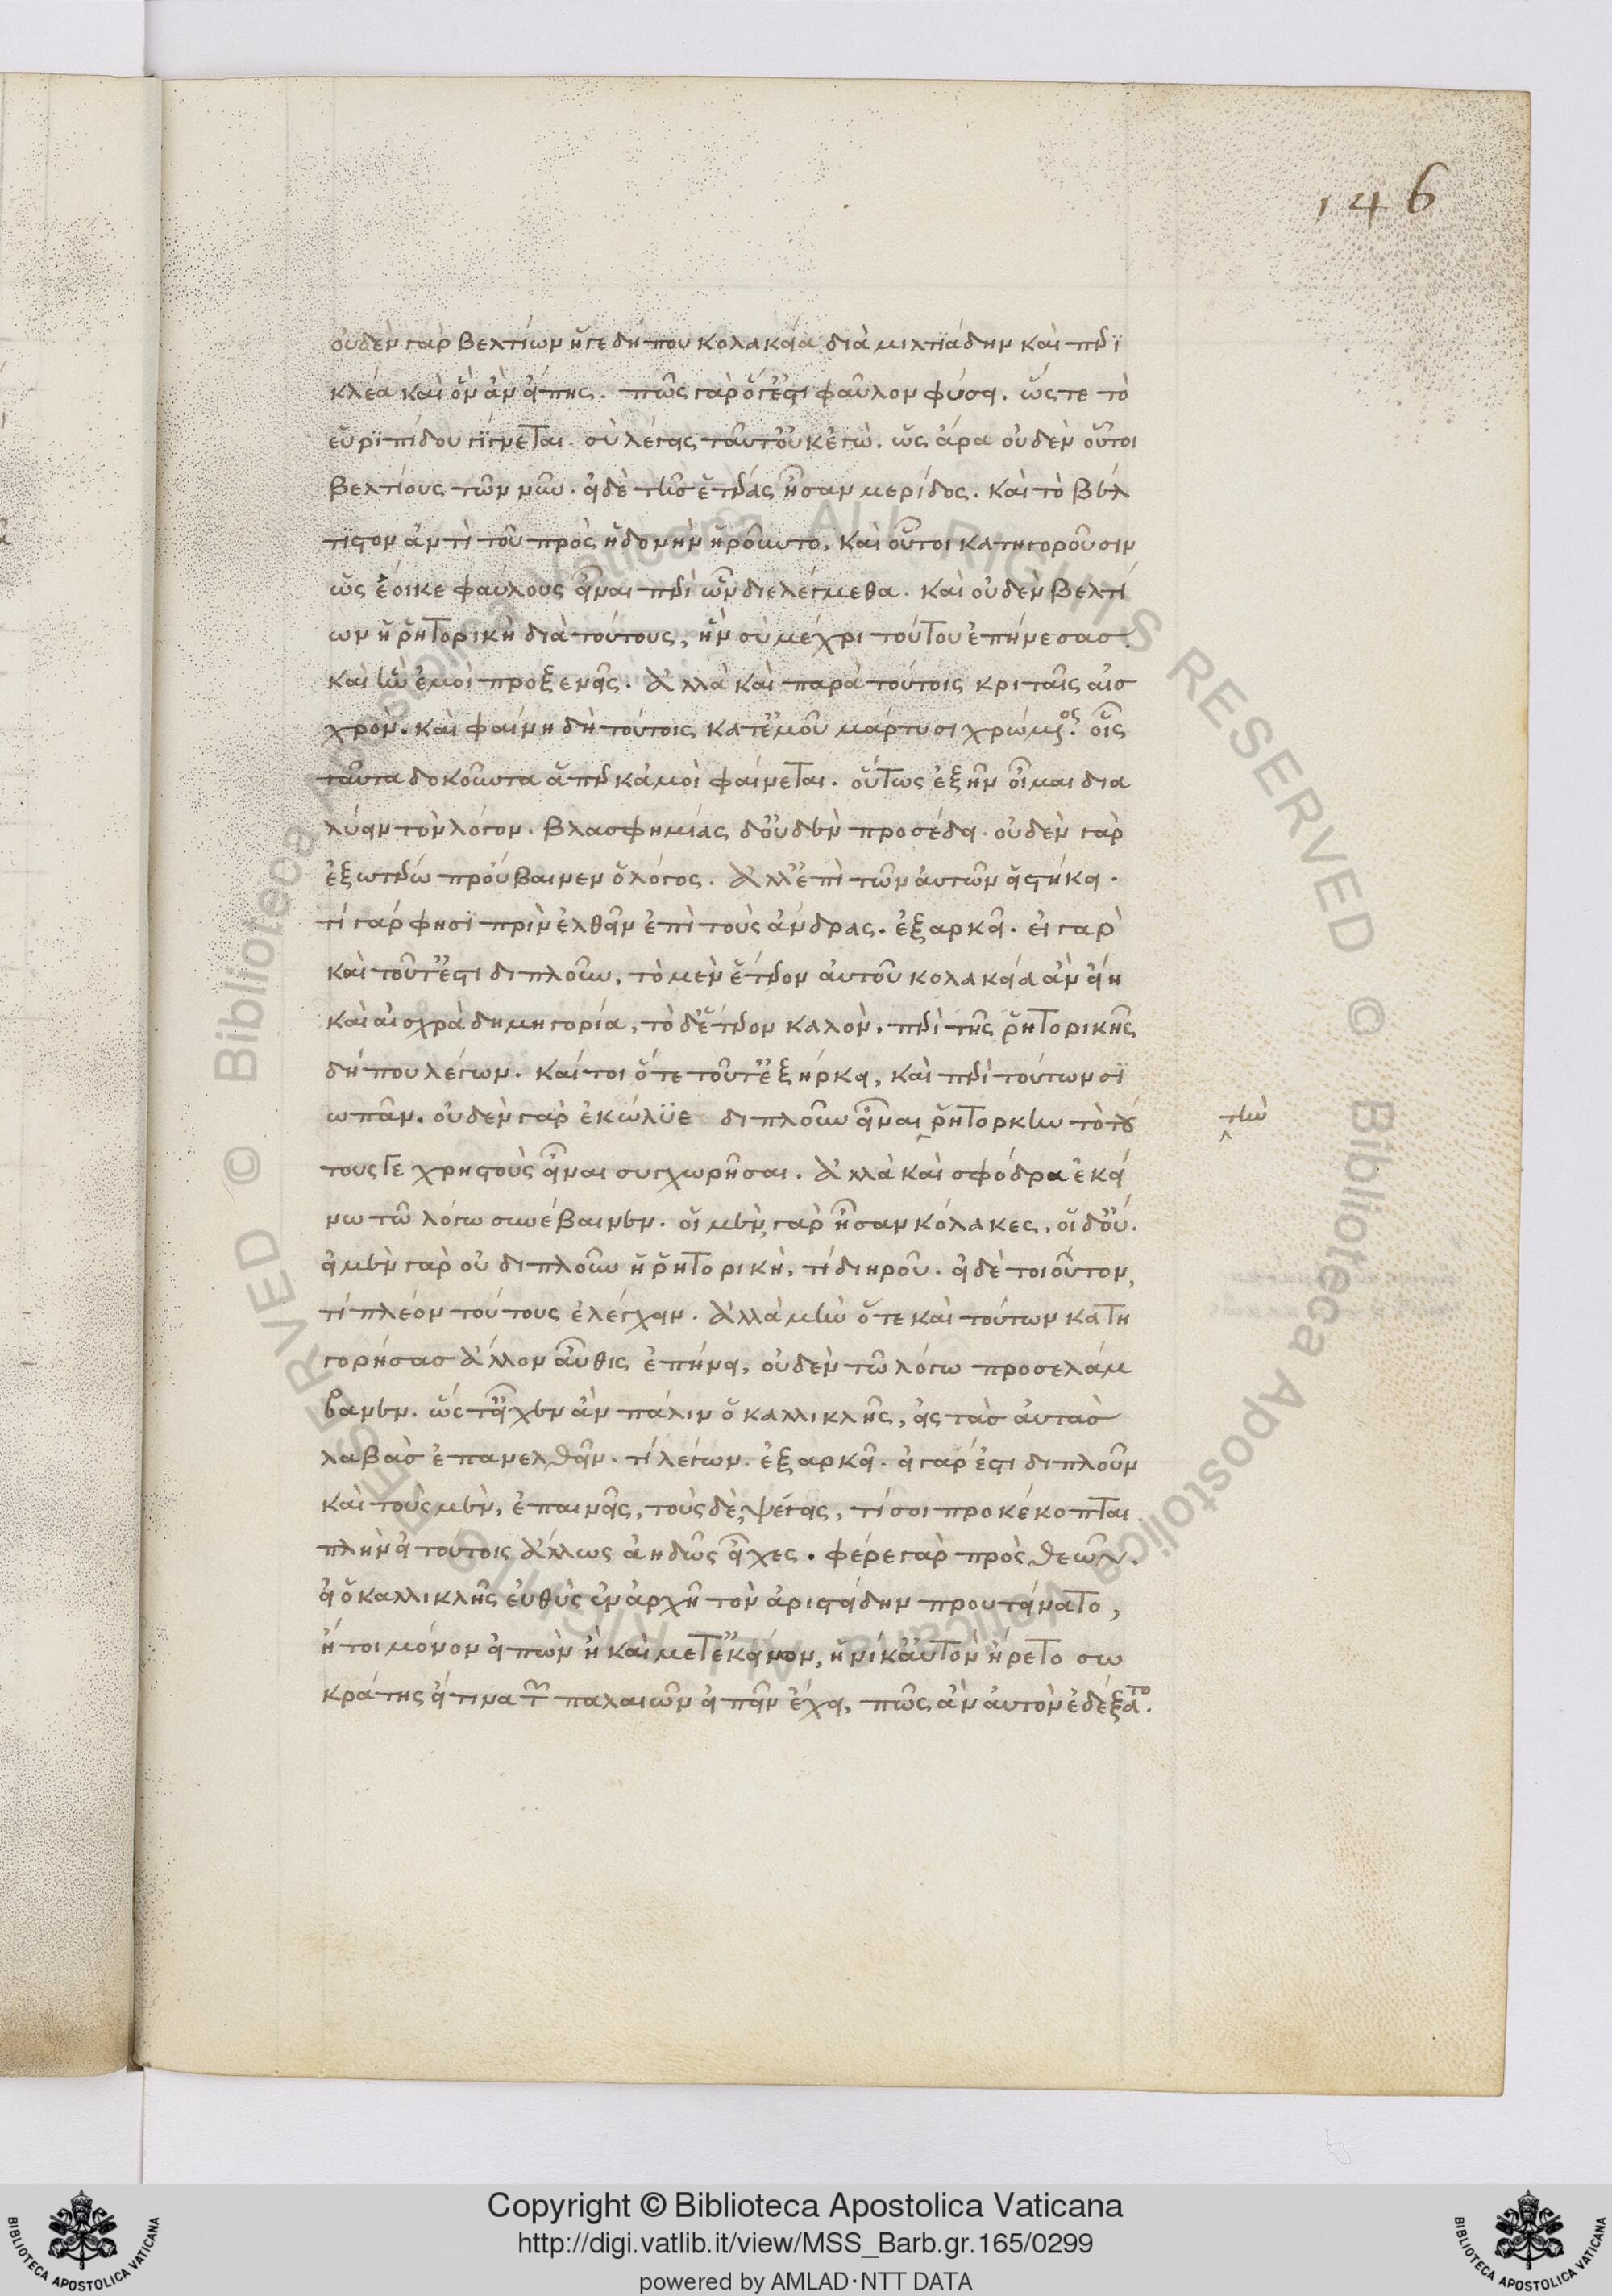 146
οὐδὲν γὰρ βελτίων ἥγε δήπου κολακεία διὰ μιλτϊάδην καὶ περϊ
κλέα καὶ ὃν ἂν εἴπης. πῶς γὰρ ὅγἐστι φαῦλον φύσει. ὥςτε τὸ
εὐρϊπίδου γίγνεται. σὺ λέγεις ταῦτ’ οὐκ ἐγώ. ὡς ἄρα οὐδὲν οὗτοι
βελτίους τῶν νῦν. εἰ δὲ τῆσ ἑτέρας ἦσαν μερίδος. καὶ τὸ βέλ
τϊστον ἀντὶ τοῦ πρὸς ἡδονὴν ἡροῦντο. καὶ οὗτοι κατηγοροῦσιν
ὡς ἔοικε φαύλους εἶναι περὶ ὧν διελέγμεθα. καὶ οὐδὲν βελτί
ων ἡ ῥητορικὴ διὰ τούτους, ἣν σὺ μέχρι τούτου ἐπήνεσασ
καὶ ἣν ἐμοὶ προξενεῖς. ἀλλὰ καὶ παρὰ τούτοις κριταῖς αἰσ
χρόν. καὶ φαίνη δὴ τούτοις κατ’ ἐμοῦ μάρτυσι χρώμενος. οἷς
ταῦτα δοκοῦντα ἅπερ κἀμοὶ φαίνεται. οὕτως ἐξῆν οἶμαι δια
λύειν τὸν λόγον. βλασφημίας δ’ οὐδὲν προσέδει. οὐδὲν γὰρ
ἐξωτέρω προὔβαινεν ὁ λόγος. ἀλλ’ ἐπὶ τῶν αὐτῶν εἱστήκει.
τί γάρ φησϊ πρὶν ἐλθεῖν ἐπὶ τοὺς ἄνδρας. ἐξαρκεῖ. εἰ γὰρ
καὶ τοῦτ’ ἔστι διπλοῦν, τὸ μὲν ἕτερον αὐτοῦ κολακεία ἂν εἴη
καὶ αἰσχρὰ δημηγορία, τὸ δ’ ἕτερον καλὸν. περὶ τῆς ῥητορικῆς
δήπου λέγων. καίτοι ὅτε τοῦτ’ ἐξήρκει, καὶ περὶ τούτων σϊ
ωπᾶν. οὐδὲν γὰρ ἐκώλϋε διπλοῦν εἶναι ῥητορκὴν τὸ τού
τὴν
τους γε χρηστοὺς εἶναι συγχωρῆσαι. ἀλλὰ καὶ σφόδρα ἐκεί
νω τῶ λόγω συνέβαινεν. οἱ μὲν γὰρ ἦσαν κόλακες, οἱ δ’ οὔ.
εἰ μὲν γὰρ οὐ διπλοῦν ἡ ῥητορικὴ, τί διηροῦ. εἰ δὲ τοιοῦτον,
τί πλέον τούτους ἐλέγχειν. ἀλλὰ μὴν ὅτε καὶ τούτων κατη
γορήσασ ἄλλον αὖθις ἐπήνει, οὐδὲν τῶ λόγω προσελάμ
βανεν. ὥςτ’ εἶχεν ἂν πάλιν ὁ καλλικλῆς, εἰς τὰσ αὐτὰσ
λαβὰσ ἐπανελθεῖν. τί λέγων. ἐξαρκεῖ. εἰ γάρ ἐστι διπλοῦν
καὶ τοὺς μὲν, ἐπαινεῖς, τοὺς δὲ, ψέγεις, τί σοι προκέκοπται
πλὴν εἰ τούτοις ἄλλως ἀηδῶς εἶχες. φέρε γὰρ πρὸς θεῶν.
εἰ ὁ καλλικλῆς εὐθὺς ἐν ἀρχῆ τὸν ἀριστείδην προυτείνατο,
ἤτοι μόνον εἰπὼν ἢ καὶ μετ’ ἐκείνων, ἡνίκ’ αὐτὸν ἤρετο σω
κράτης εἴ τινα τῶν παλαιῶν εἰπεῖν ἔχει, πῶς ἂν αὐτὸν ἐδέξατο.
Copyright © Biblioteca Apostolica Vaticana
http://digi.vatlib.it/view/MSS_Barb.gr.165/0299
powered by AMLAD·NTT DATA